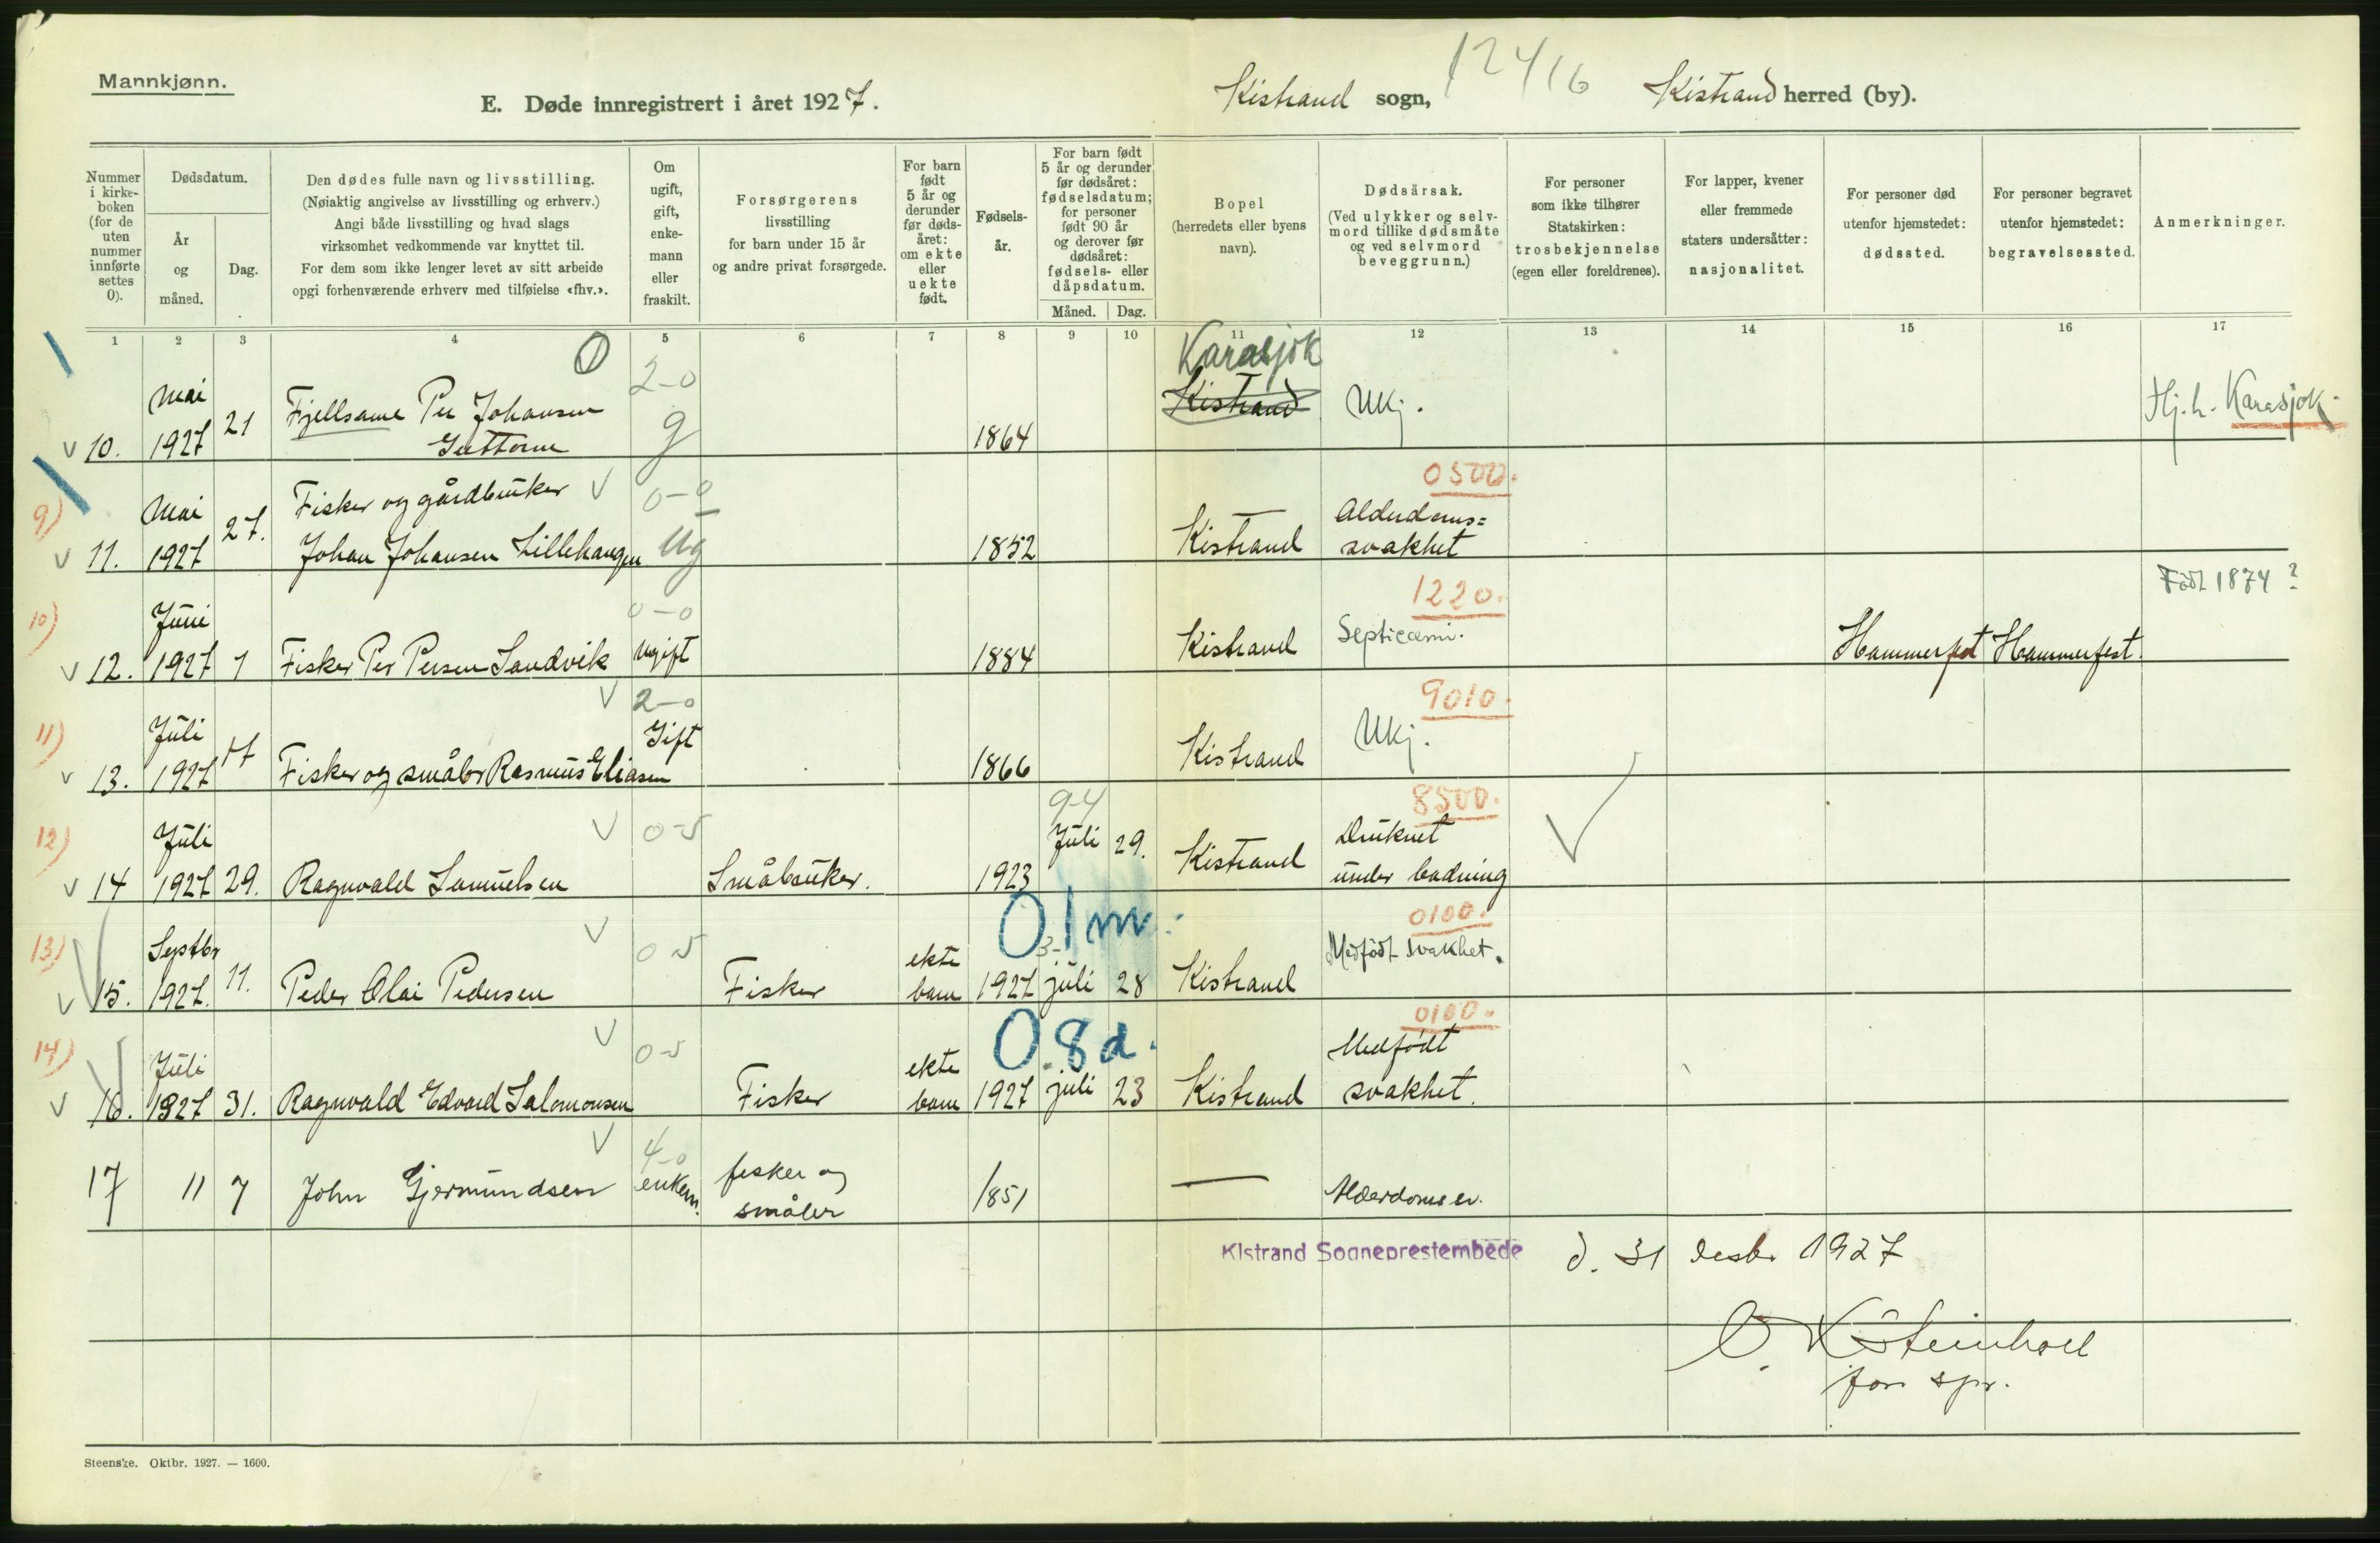 Mannkjønn.
E. Døde innregistrert i året 1927.
Kistrand sogn,
12416
Kistrand herred (by).
Nummer i kirke-boken (for de uten nummer innførte settes 0).
Dødsdatum.
År og måned.
Dag.
Den dødes fulle navn og livsstilling.
(Nøiaktig angivelse av livsstilling og erhverv.)
Angi både livsstilling og hvad slags
virksomhet vedkommende var knyttet til.
For dem som ikke lenger levet av sitt arbeide
opgi forhenværende erhverv med tilføielse «fhv.».
Om ugift, gift, enke-mann eller fraskilt.
Forsørgerens
livsstilling
for barn under 15 år
og andre privat forsørgede.
For barn født 5 år og derunder før døds-året: om ekte eller uekte født.
Fødsels-år.
For barn født 5 år og derunder før dødsåret: fødselsdatum; for personer født 90 år og derover før dødsåret: fødsels- eller dåpsdatum.
Måned. Dag.
Bopel
(herredets eller byens
navn).
Dødsårsak.
(Ved ulykker og selv-mord tillike dødsmåte og ved selvmord beveggrunn.)
For personer
som ikke tilhører
Statskirken:
trosbekjennelse
(egen eller foreldrenes).
For lapper, kvener
eller fremmede
staters undersåtter:
nasjonalitet.
For personer død
utenfor hjemstedet:
dødssted.
For personer begravet
utenfor hjemstedet:
begravelsessted.
Anmerkninger.
1 2 3 4 5 6 7 8 9 10 11 12 13 14 15 16 17
0 2-0 Karasjok
10. Mai 1927 21 Fjellsame Per Johansen Guttorm g 1864 Kistrand Ukj. Hj.h. Karasjok.
9) 0-0 0500.
11. Mai 1927 27. Fisker og gårdbruker Johan Johansen Lillehaugen ug 1852 Kistrand Alderdoms=svakhet
10) 0-0 1220. Født 1874?
12. Juni 1927 1 Fisker Per Persen Sandvik ugift 1884 Kistrand Septicæmi. Hammerfest Hammerfest.
11) 2-0 9010.
13. Juli 1927 17 Fisker og småbr Rasmus Eliasen Gift 1866 Kistrand Ukj.
12) 0-5 94 8500.
14 Juli 1927 29. Ragnvald Samuelsen Småbruker. 1923 Juli 29. Kistrand Druknet under badning
13) 0 5 0 1 m. 3- 0100.
15. Septbr 1927. 11. Peder Olai Pedersen Fisker ekte barn 1927 juli 28 Kistrand Medfødt svakhet.
14) 0-5 0 8 d. 0100.
16. Juli 1927 31. Ragnvald Edvard Salomonsen Fisker ekte barn 1927 juli 23 Kistrand Medfødt svakhet.
4-0
17 11 7 John Gjermundsen enkem. fisker og småbr 1851 — Alderdomssv.
Kistrand Sogneprestembede d. 31 desbr 1927
O. K. Steinholt
for spr.
Steenske. Oktbr. 1927. — 1600.